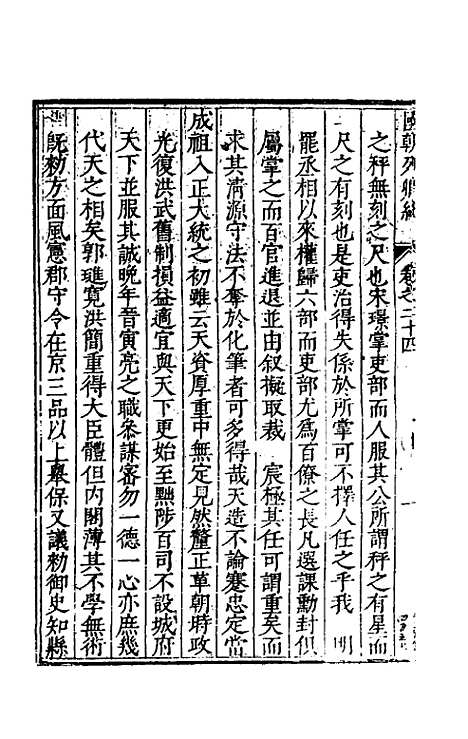 國朝列卿紀 卷之二十四
之秤無刻之尺也宋璟掌吏部而人服其公所謂秤之有星而
尺之有刻也是吏治得失係於所掌可不擇人任之乎我 明
罷丞相以來權歸六部而吏部尤為百僚之長凡選課勳封俱
屬掌之而百官進退並由叙擬取裁 宸極其任可謂重矣而
求其清源守法不奪於化筆者可多得哉天造不論蹇忠定當
成祖入正大統之初雖云天資厚重中無定見然釐正革朝時政
光復洪武舊制損益適宜與天下更始至黜陟百司不設城府
天下並服其誠晚年晉寅亮之職參謀審勿一德一心亦庶幾
代天之相矣郭璡寬洪簡重得大臣體但内閣薄其不學無術
既勑方面風憲郡守令在京三品以上舉保又議勑御史知縣